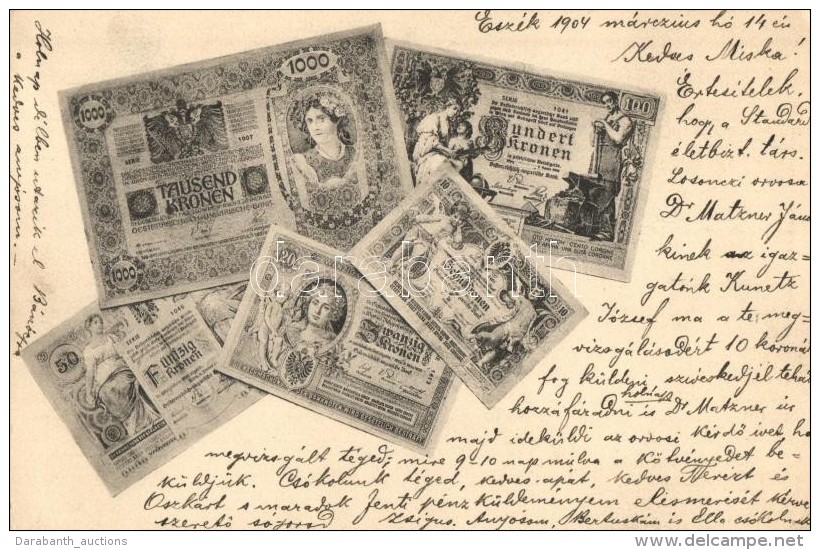 Eszék 1904 márczius hó 14 én
Kedves Miska!
Értesitelek,
hogy a Standard
életbizt. társ.
Losonczi orvosa
Dr Matzner János
kinek igaz-
gatónk Kunetz
József ma a te meg-
vizsgálásodért 10 koronát
fog küldeni, sziveskedjél tehát
holnap
hozzáfáradni is Dr Matzner úr
majd ideküldi az orvosi kérdő ivet ha
megvizsgált téged; mire 9-10 nap múlva a kötvényedet be-
küldjük. Csókolunk téged, kedves apát, kedves Terézt és
Oszkárt s maradok fenti pénzküldeményem elismerését kérve
szerető sógorod Zsigus. Anyósom, Bertuskám is Ella csókolnak
Holnap délben utazik el
a kedves anyósom.-
1000
1000
SERIE
1007
TAUSEND
KRONEN
OESTERREICHISCH-UNGARISCHE BANK
1000
SERIE 1041
100
Hundert
Kronen
50
SERIE
1046
Fünfzig
Kronen
20
Zwanzig
Kronen
10
Zehn Kronen
10
darabanth
Darabanth_auctions
delcampe.net